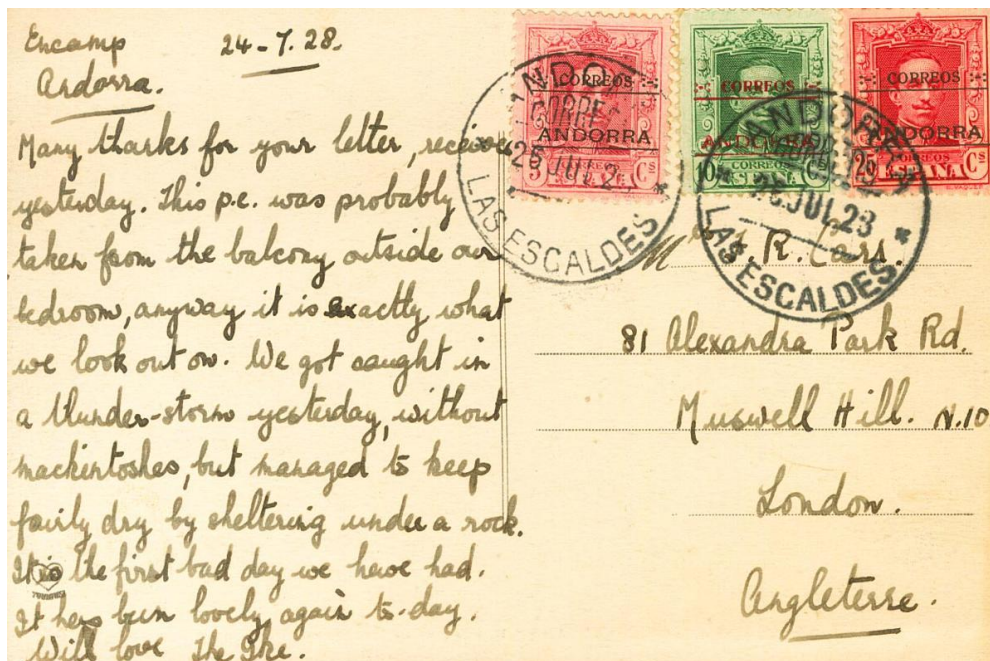 Encamp 24-7.28.
Andorra.
Many thanks for your letter, received
yesterday. This p.c. was probably
taken from the balcony outside our
bedroom, anyway it is exactly what
we look out on. We got caught in
a thunder-storm yesterday, without
mackintoshes, but managed to keep
fairly dry by sheltering under a rock.
It is the first bad day we have had.
It has been lovely again to-day.
Will love The
CORREOS
ANDORRA
5 Cs
CORREOS
ANDORRA
CORREOS
10 ESPAÑA Cs
CORREOS
ANDORRA
CORREOS
25 ESPAÑA Cs
ANDORRA
CORREOS
25 JUL 2
LAS ESCALDES
ANDORRA
CORREOS
JUL.23
LAS ESCALDES
R. Carr.
81 Alexandra Park Rd.
Muswell Hill. N.10
London.
Angleterre.